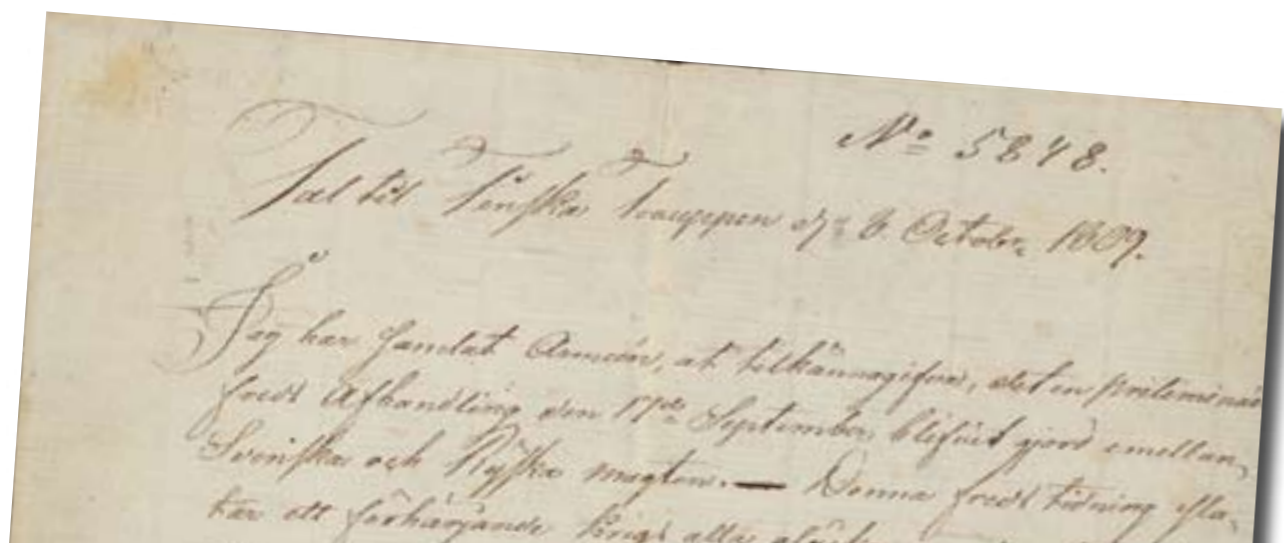 No 5848.
Tal til Finska Trouppen d. 8 Octobr. 1809.
Jag har samlat Arméen, at tilkännagifva, det en preliminair
freds Afhandling den 17de September blifvit gjord emellan
Svenska och Ryska magten. — Denna freds tidning
ett förhärjande krigs alla